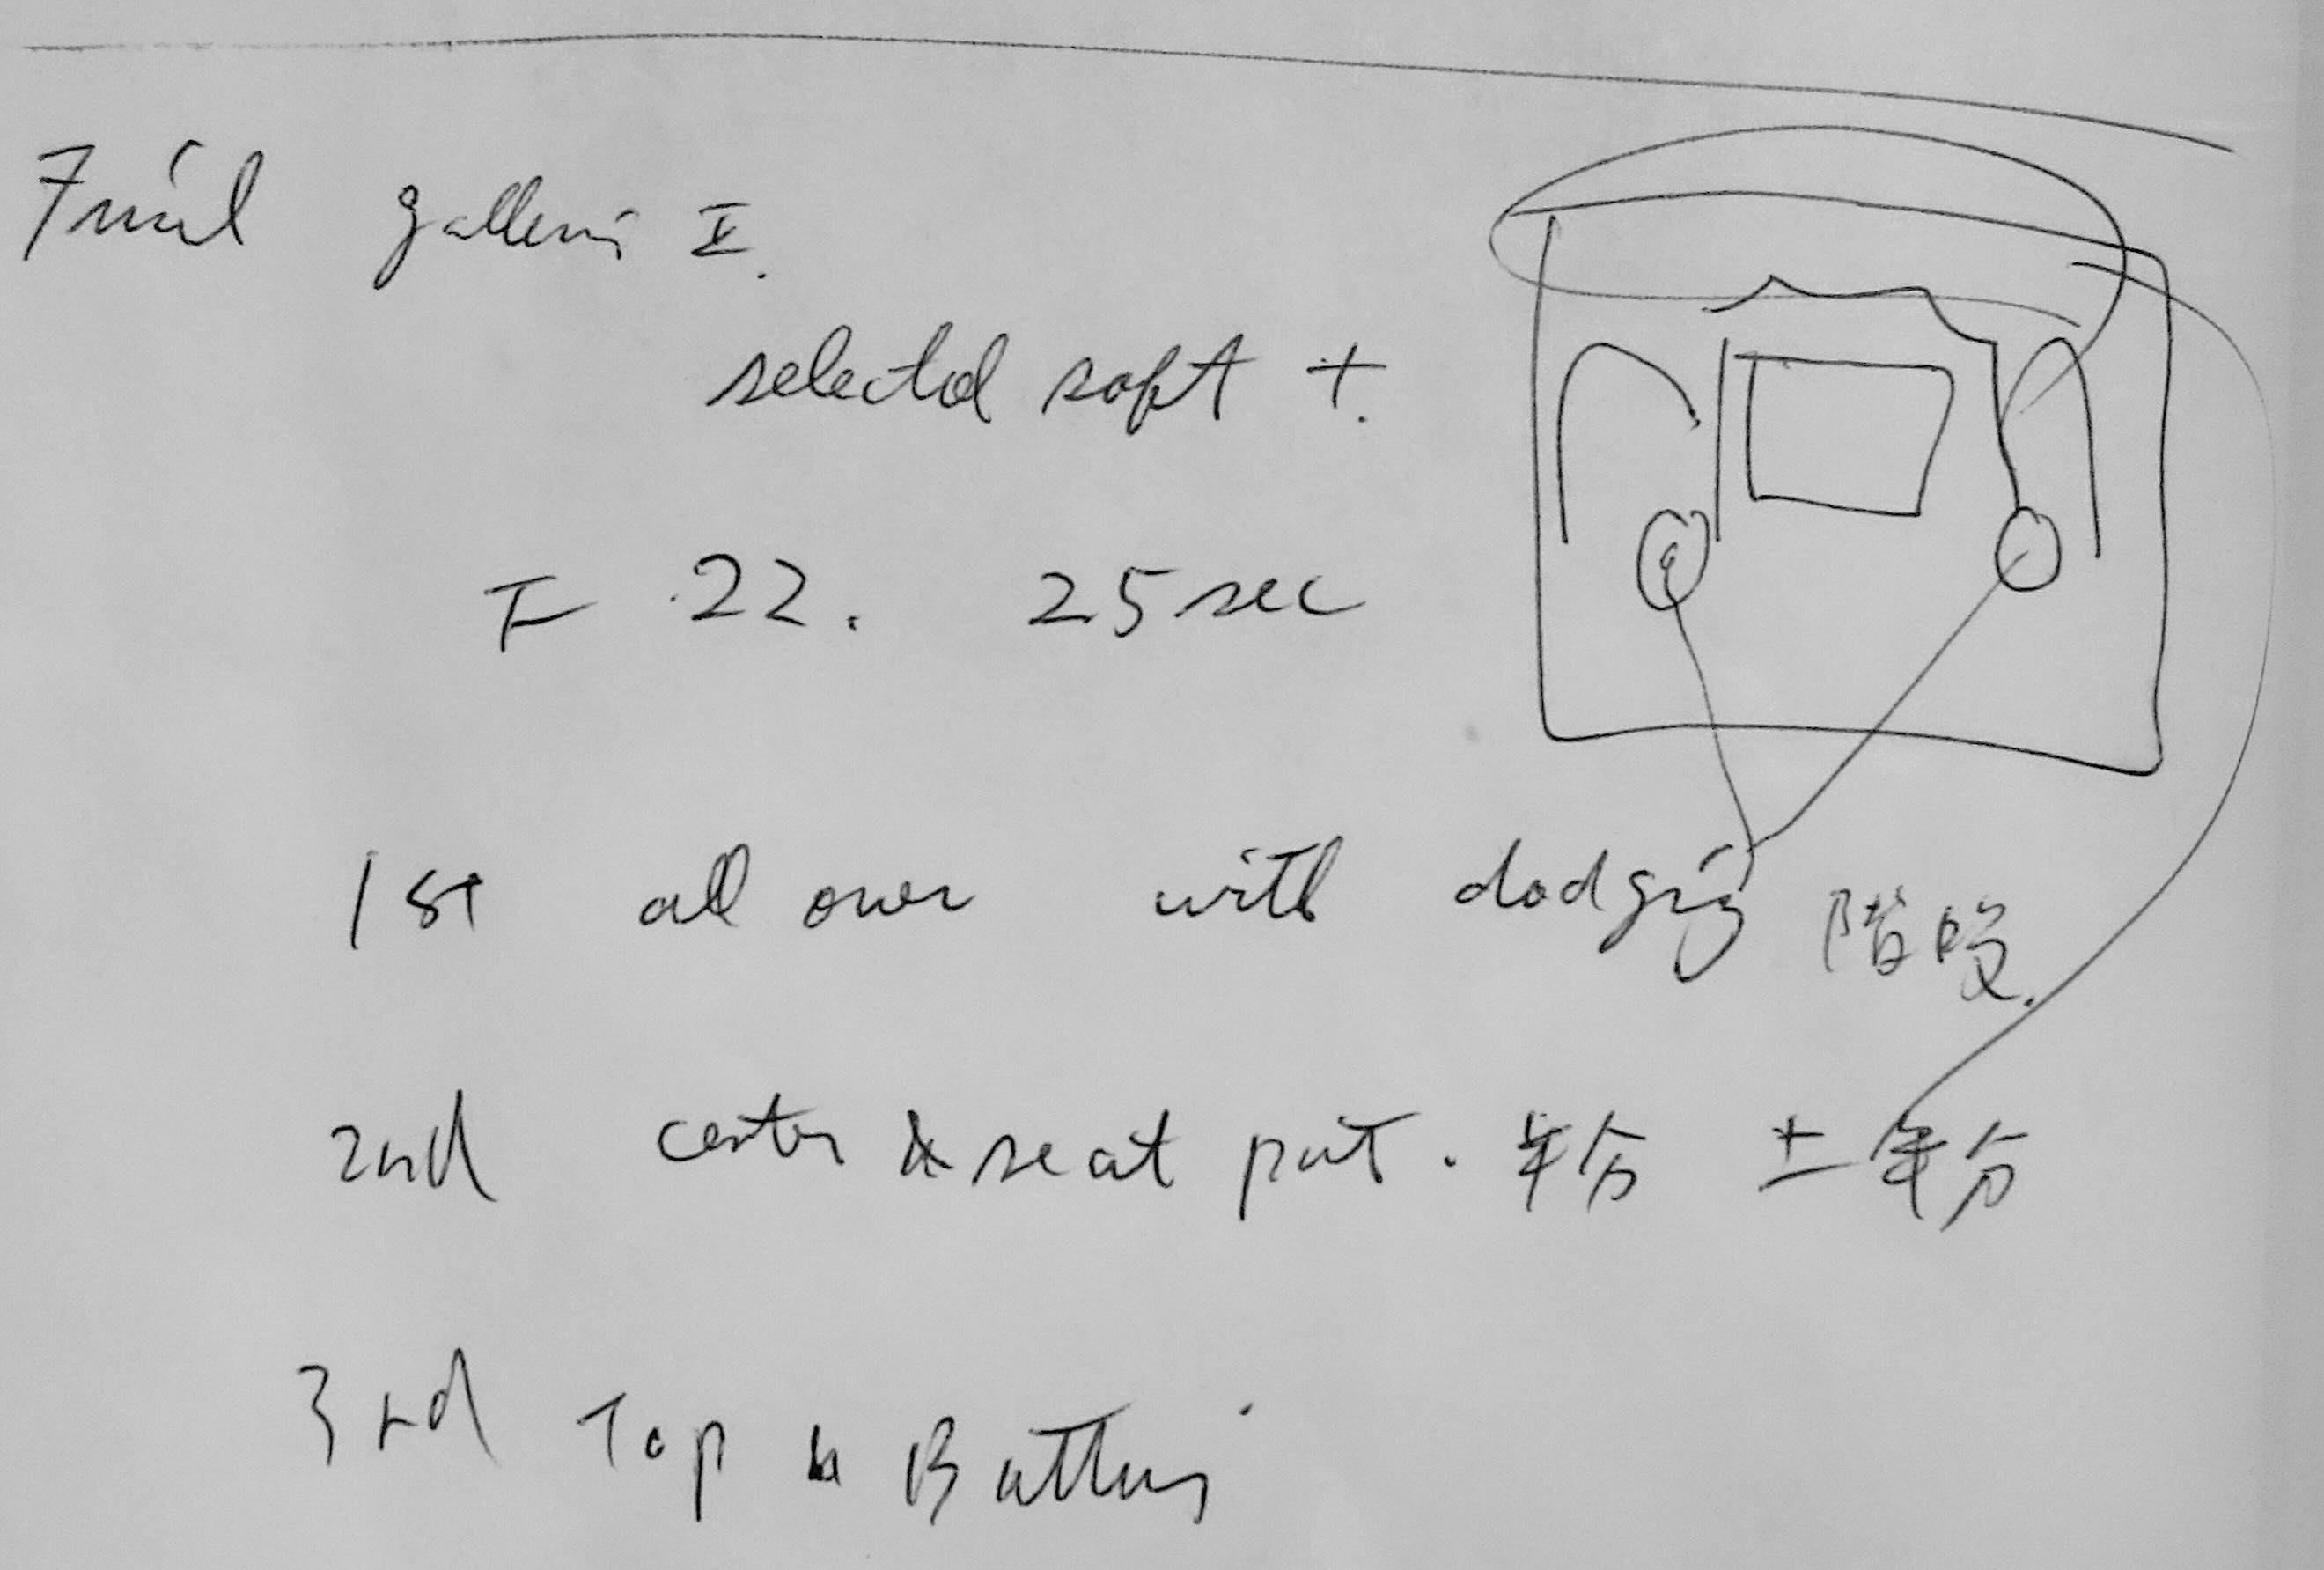 Final gallerie II.
selected soft +.
F 22. 25 sec
1st all over with dodging 階段.
2nd center & seat part. 半分 ± 半分
3rd Top & Buttom